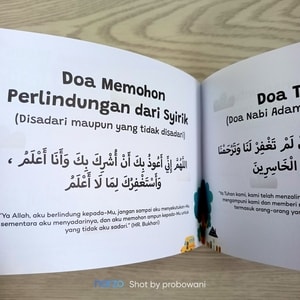 Doa Memohon
Perlindungan dari Syirik
(Disadari maupun yang tidak disadari)
اللَّهُمَّ إِنِّي أَعُوذُ بِكَ أَنْ أُشْرِكَ بِكَ وَأَنَا أَعْلَمُ ،
وَأَسْتَغْفِرُكَ لِمَا لَا أَعْلَمُ
"Ya Allah, aku berlindung kepada-Mu, jangan sampai aku menyekutukan-Mu
sementara aku menyadarinya, dan aku memohon ampun kepada-Mu untuk
yang tidak aku sadari." (HR. Bukhari)
Doa T
(Doa Nabi Adam
لَمْ تَغْفِرْ لَنَا وَتَرْحَمْنَا
الْخَاسِرِينَ
"Ya Tuhan kami, kami telah menzalim
mengampuni kami dan memberi
termasuk orang-orang ya
Shot by probowani